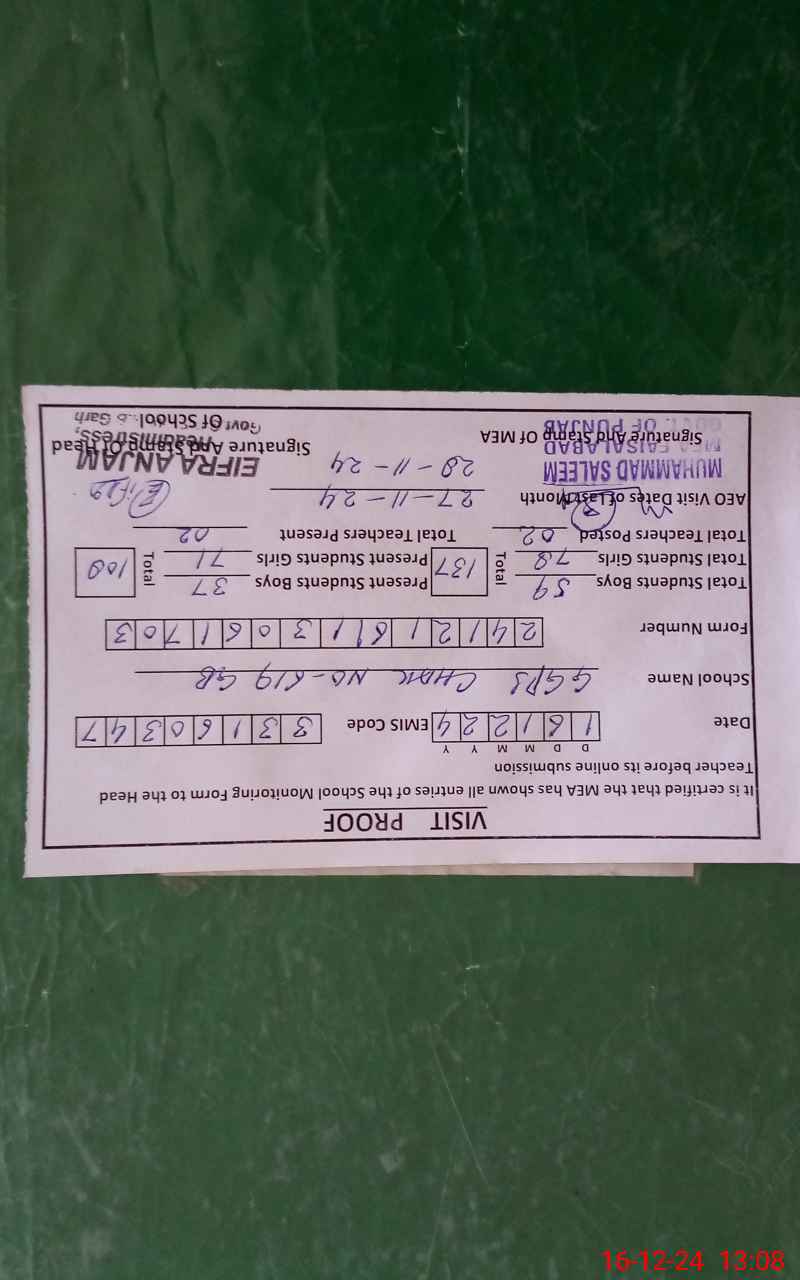 VISIT PROOF
It is certified that the MEA has shown all entries of the School Monitoring Form to the Head
Teacher before its online submission
D D M M Y Y
Date 161224 EMIS Code 33160347
School Name GGPS CHAK NO-619 GB
Form Number 2412161130061703
Total Students Boys 59 Total 137 Present Students Boys 37 Total 108
Total Students Girls 78 Present Students Girls 71
Total Teachers Posted 02 Total Teachers Present 02
AEO Visit Dates of Last Month 27-11-24
28-11-24
MUHAMMAD SALEEM
MEA FAISALABAD
GOVT. OF PUNJAB
Signature And Stamp Of MEA
EIFRA ANJAM
Headmistress,
Signature And Stamp Of Head
Govt Of School
16-12-24 13:08